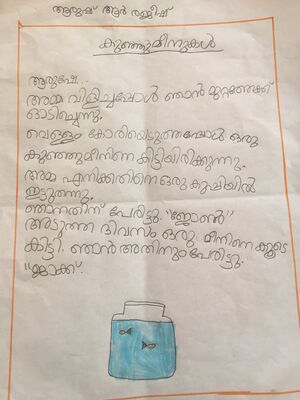 ആരുഷ് ആർ രമ്മീഷ്
കുഞ്ഞുമീനുകൾ
ആരുഷേ..
അമ്മ വിളിച്ചപ്പോൾ ഞാൻ മുറ്റത്തേക്ക്
ഓടിച്ചെന്നു.
വെള്ളം കോരിയെടുത്തപ്പോൾ ഒരു
കുഞ്ഞുമീനിനെ കിട്ടിയിരിക്കുന്നു.
അമ്മ എനിക്കതിനെ ഒരു കുപ്പിയിൽ
ഇട്ടുതന്നു.
ഞാനതിന് പേരിട്ടു. "ജോൺ"
അടുത്ത ദിവസം ഒരു മീനിനെ കൂടെ
കിട്ടി. ഞാൻ അതിനും പേരിട്ടു.
"ജാക്ക്".